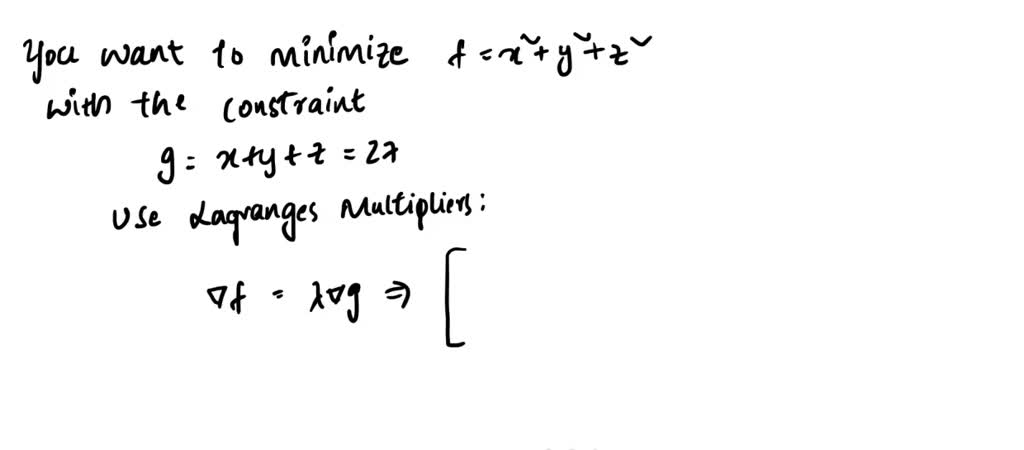 You want to minimize f = x² + y² + z²
with the constraint
g = x+y+z = 27
Use Lagranges Multipliers:
∇f = λ∇g ⇒ [